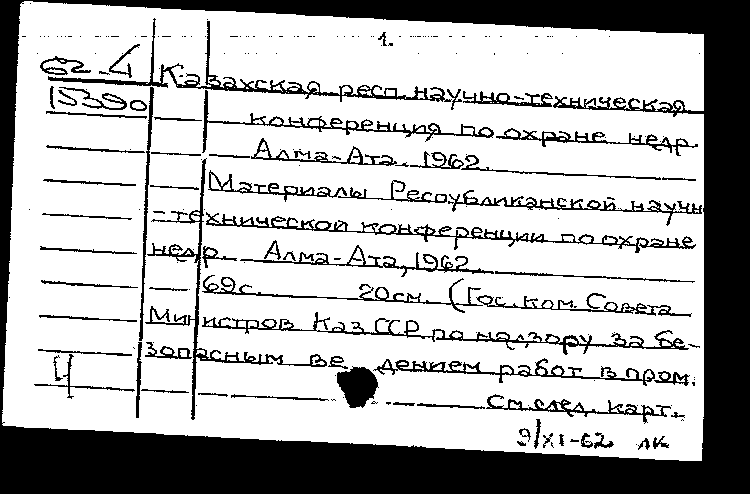 1.
62-4 Казахская респ. научно-техническая
15390 конференция по охране недр.
Алма-Ата. 1962.
Материалы Республиканской научн
-технической конференции по охране
недр. Алма-Ата, 1962.
69с. 20см. (Гос. ком. Совета
Министров КазССР по надзору за бе-
зопасным ведением работ в пром.
См. след. карт.
9/XI-62 лк